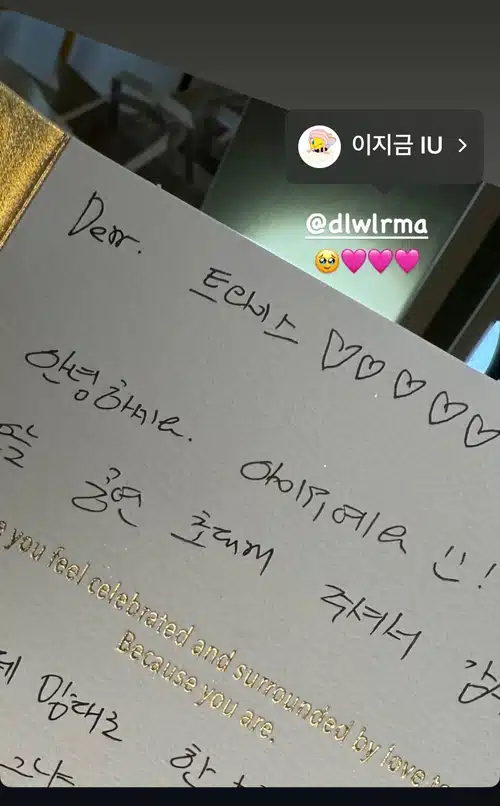 이지금 IU
@dlwlrma
🥹🩷🩷🩷
Dear. ♡♡♡♡♡
안녕하세요. 아이유예요 :)!
공연 초대해 주셔서 감
you feel celebrated and surrounded by love
Because you are.
맘대로 한